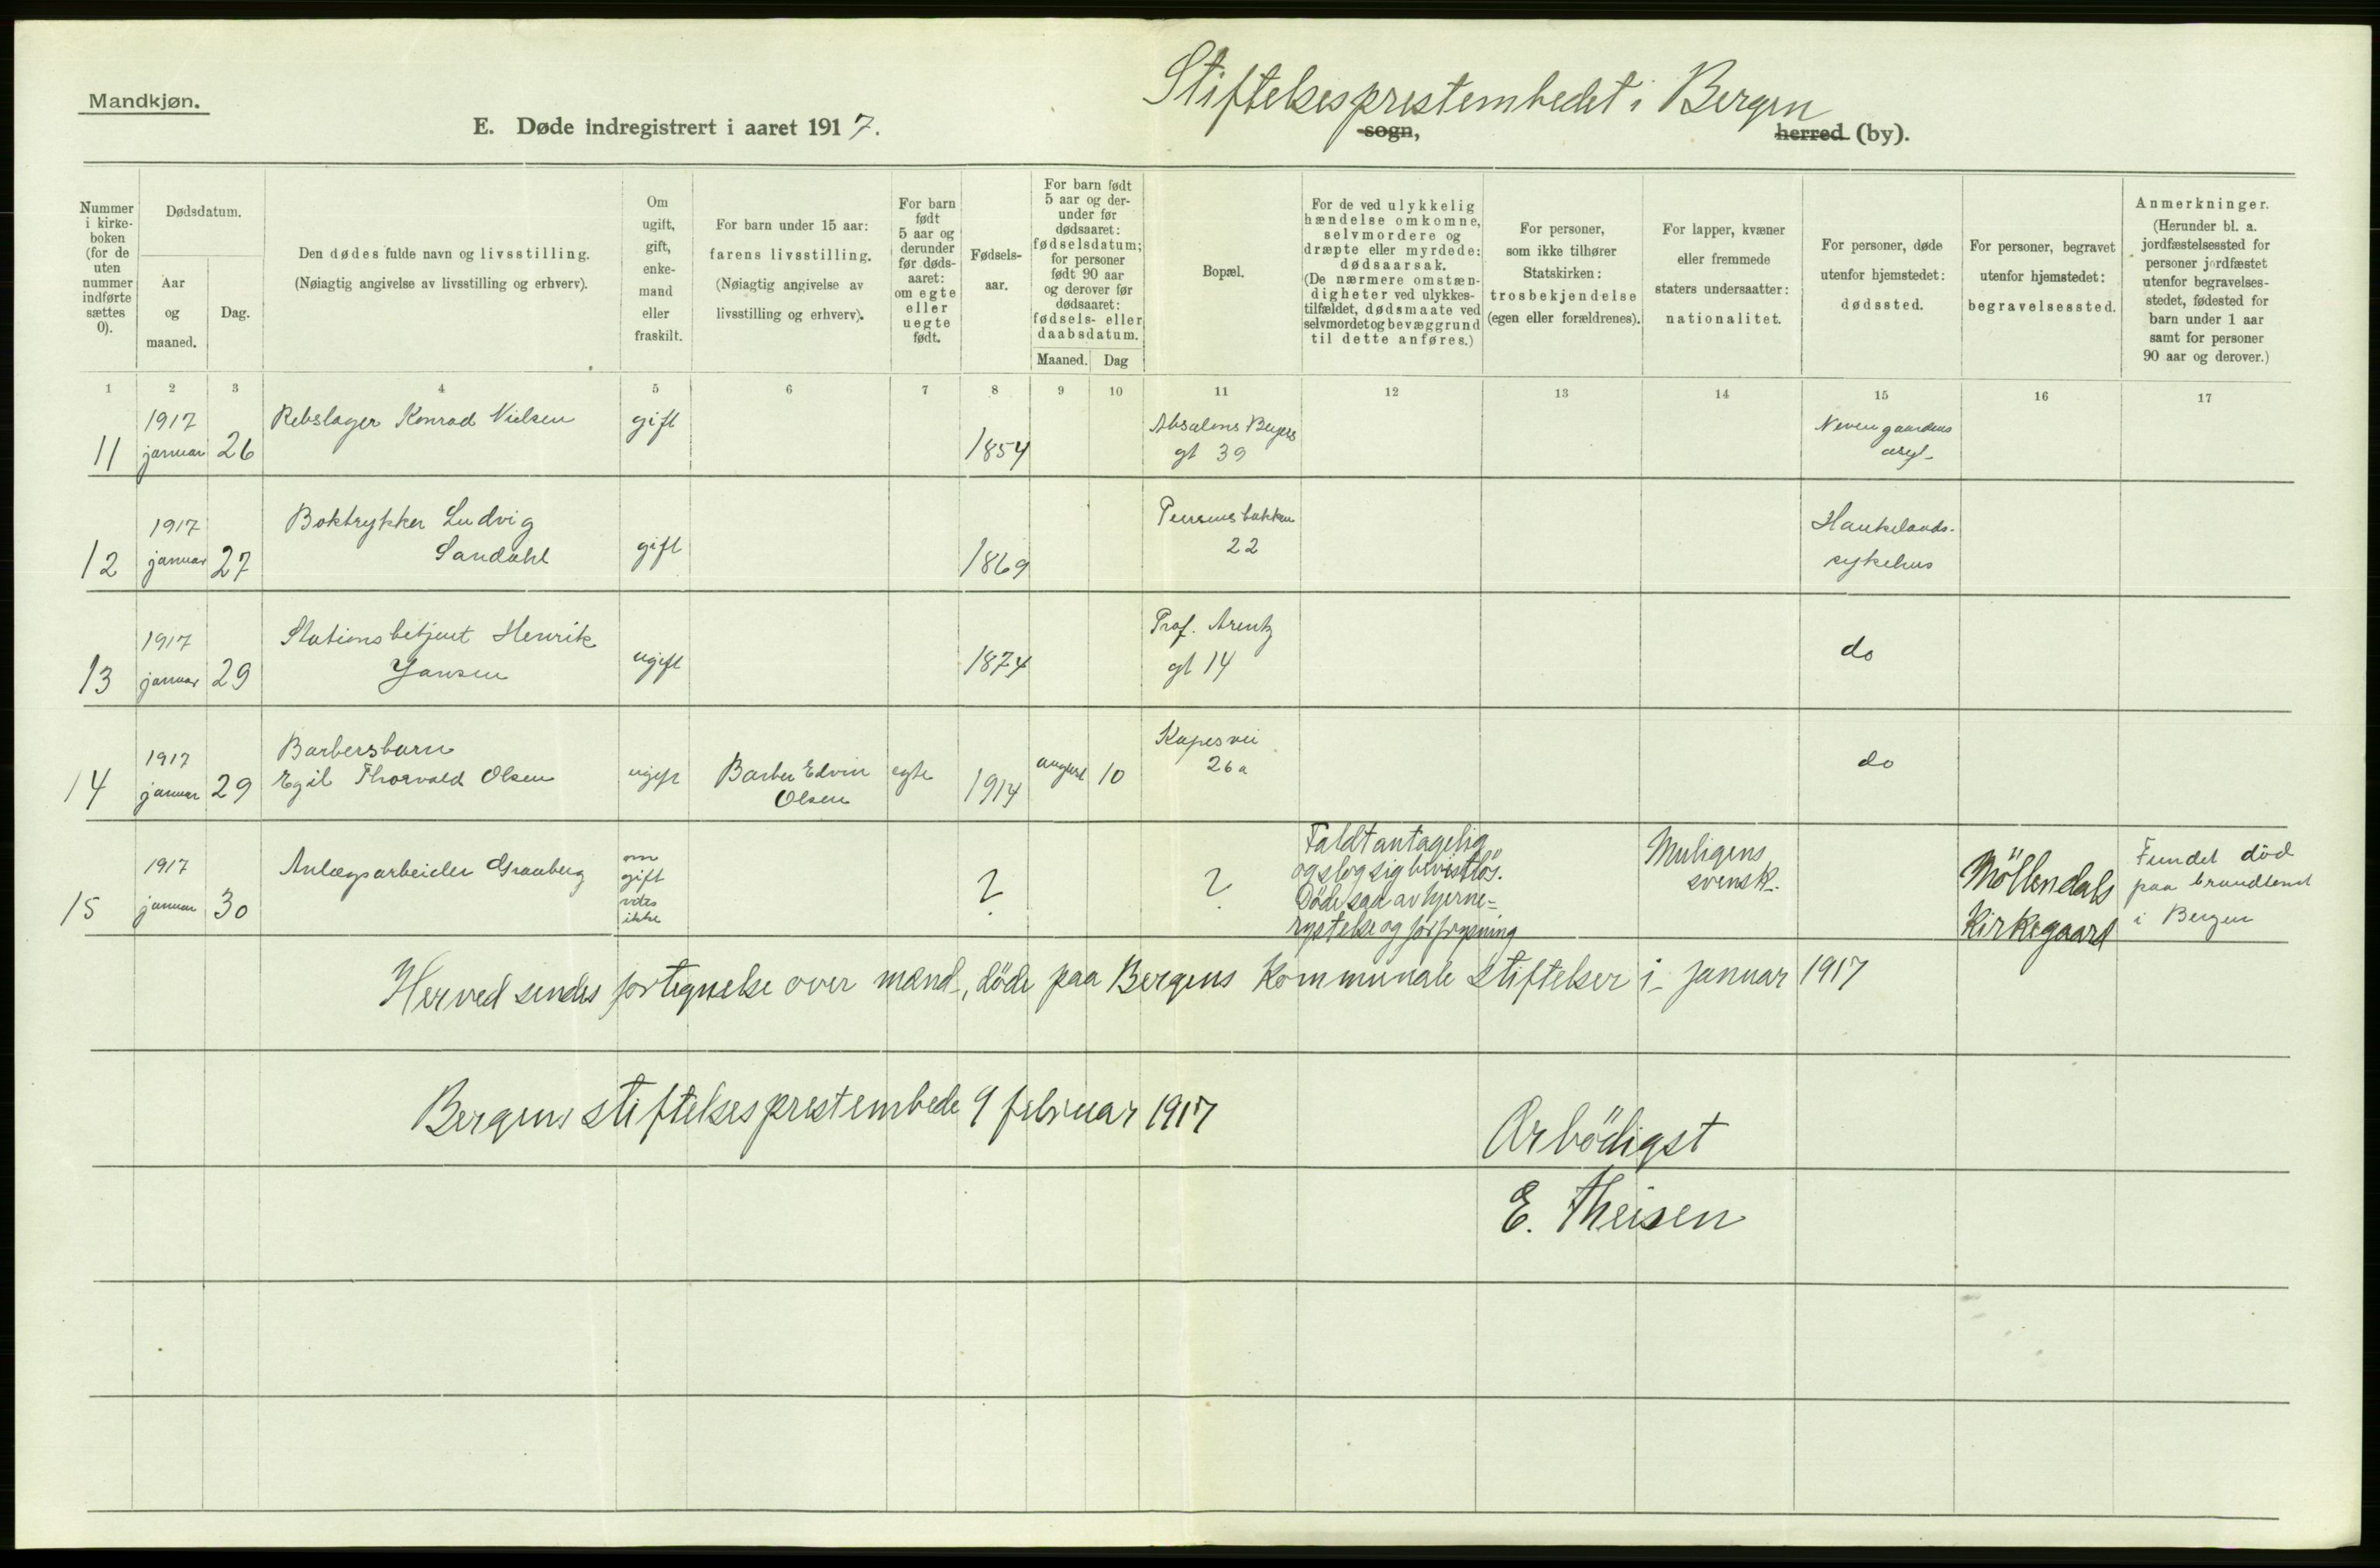 Mandkjøn.
E. Døde indregistrert i aaret 1917.
Stiftelsesprestembedet i Bergen
sogn,
herred (by).
Nummer
i kirke-
boken
(for de
uten
nummer
indførte
sættes
0).
Dødsdatum.
Aar
og
maaned.
Dag.
Den dødes fulde navn og livsstilling.
(Nøiagtig angivelse av livsstilling og erhverv).
Om
ugift,
gift,
enke-
mand
eller
fraskilt.
For barn under 15 aar:
farens livsstilling.
(Nøiagtig angivelse av
livsstilling og erhverv).
For barn
født
5 aar og
derunder
før døds-
aaret:
om egte
eller
uegte
født.
Fødsels-
aar.
For barn født
5 aar og der-
under før
dødsaaret:
fødselsdatum;
for personer
født 90 aar
og derover før
dødsaaret:
fødsels- eller
daabsdatum.
Maaned.
Dag
Bopæl.
For de ved ulykkelig
hændelse omkomne,
selvmordere og
dræpte eller myrdede:
dødsaarsak.
(De nærmere omstæn-
digheter ved ulykkes-
tilfældet, dødsmaate ved
selvmordet og bevæggrund
til dette anføres.)
For personer,
som ikke tilhører
Statskirken:
trosbekjendelse
(egen eller forældrenes).
For lapper, kvæner
eller fremmede
staters undersaatter:
nationalitet.
For personer, døde
utenfor hjemstedet:
dødssted.
For personer, begravet
utenfor hjemstedet:
begravelsessted.
Anmerkninger.
(Herunder bl. a.
jordfæstelsessted for
personer jordfæstet
utenfor begravelses-
stedet, fødested for
barn under 1 aar
samt for personer
90 aar og derover.)
1 2 3 4 5 6 7 8 9 10 11 12 13 14 15 16 17
11
1917
januar
26
Rebslager Konrad Nielsen
gift
1854
Absalons Beyers
gt 39
Nevengaardens
asyl
12
1917
januar
27
Boktrykker Ludvig
Sandahl
gift
1869
22
Haukelands-
sykehus
13
1917
januar
29
Stationsbetjent Henrik
Jansen
ugift
1874
Prof. Arentz
gt 14
do
14
1917
januar
29
Barbersbarn
Egil Thorvald Olsen
ugift
Barber Edvin
Olsen
egte
1914
august
10
26a
do
15
1917
januar
30
Anlægsarbeider Graaberg
om
gift
vites
ikke
?
?
Faldt antagelig
og slog sig bevistlös.
Döde saa av hjerne=
rystelse og forfrysning
Muligens
svensk.
Möllendals
Kirkegaard
Fundet död
paa
i Bergen
Herved sendes fortegnelse over mænd, döde paa Bergens Kommunale Stiftelser i januar 1917
Bergens stiftelsesprestembede 9 februar 1917
Ærbödigst
E. Theisen